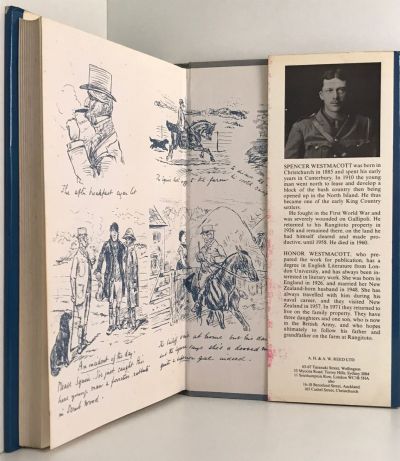 The after breakfast cigar lit
The Squire
An incident of the day.
"Please Squire I've just caught this
here young man a parocher rabbit
in Bond Wood.
SPENCER WESTMACOTT was born in
Christchurch in 1885 and spent his early
years in Canterbury. In 1910 the young
man went north to lease and develop a
block of the bush country then being
opened up in the North Island. He thus
became one of the early King Country
settlers.
He fought in the First World War and
was severely wounded on Gallipoli. He
returned to his Rangitoto property in
1926 and remained there, on the land he
had himself cleared and made pro-
ductive, until 1958. He died in 1960.
HONOR WESTMACOTT, who pre-
pared the work for publication, has a
degree in English Literature from Lon-
don University, and has always been in-
terested in literary work. She was born in
England in 1926, and married her New
Zealand-born husband in 1948. She has
always travelled with him during his
naval career, and they visited New
Zealand in 1957. In 1971 they returned to
live on the family property. They have
three daughters and one son, who is now
in the British Army, and who hopes
ultimately to follow his father and
grandfather on the farm at Rangitoto.
A. H. & A. W. REED LTD
Wellington
Sydney
London
also
Auckland
Christchurch